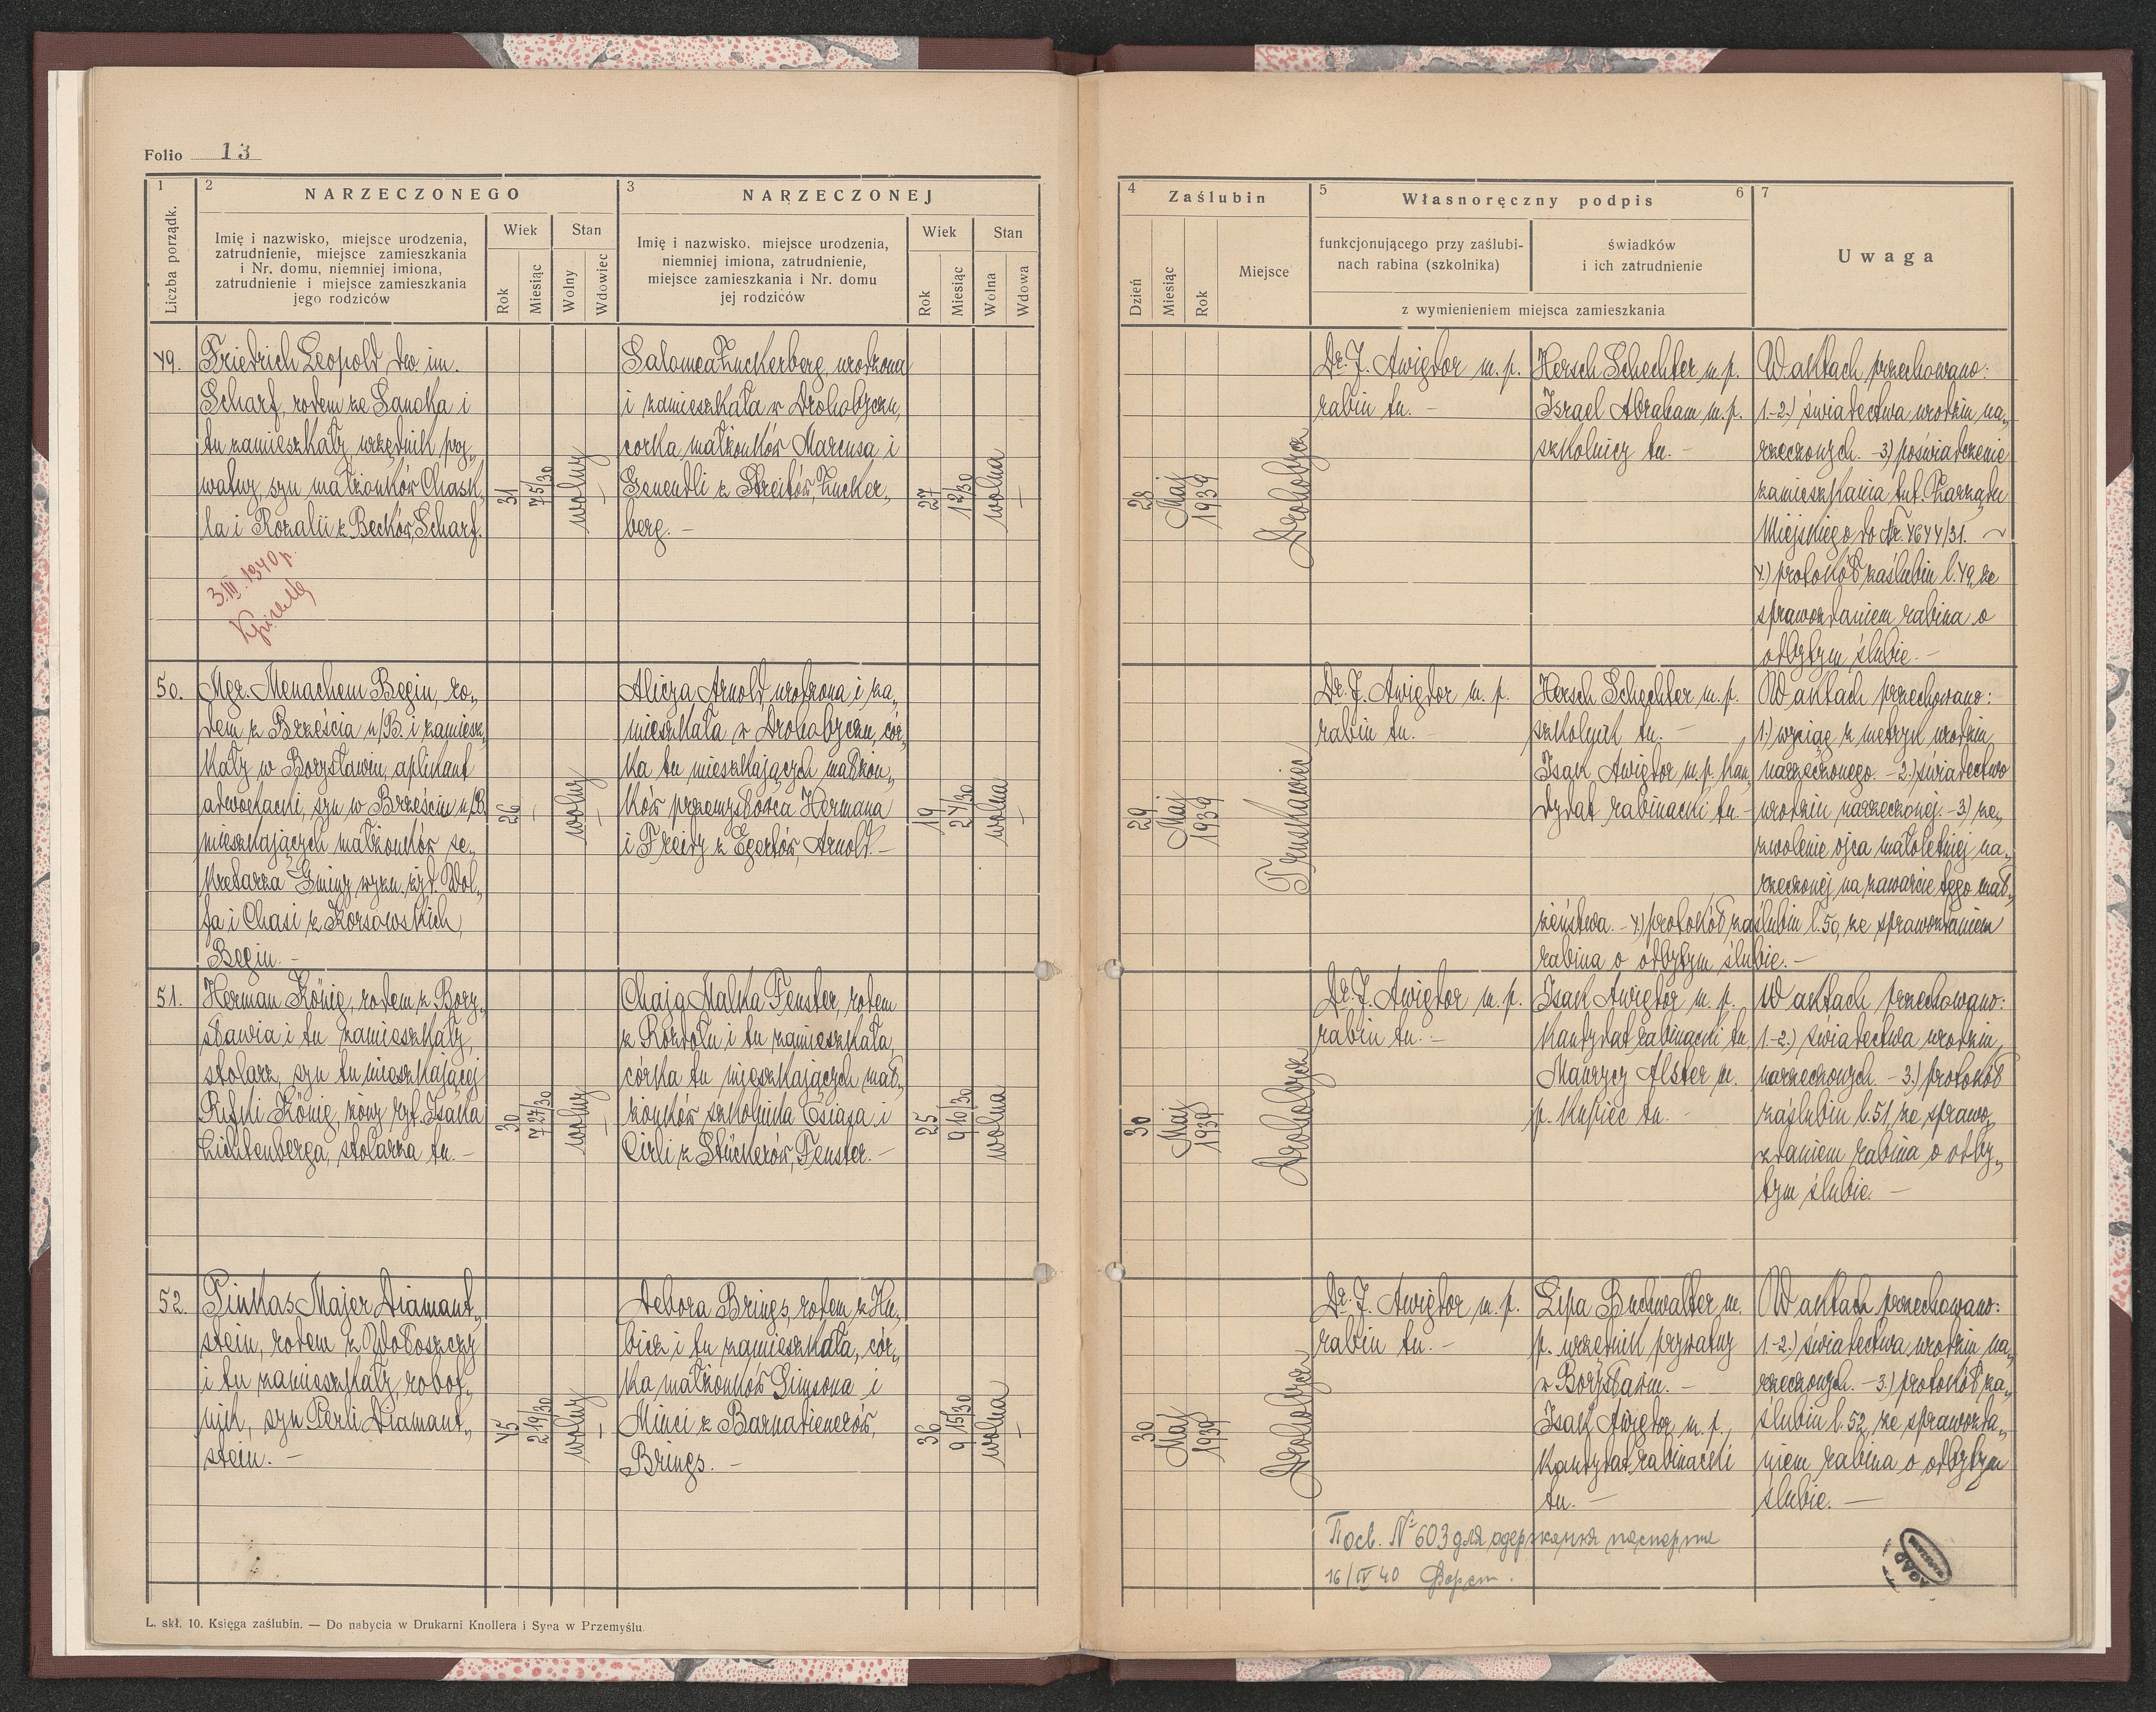 Folio 13
1
2
NARZECZONEGO
3
NARZECZONEJ
Liczba porządk.
Imię i nazwisko, miejsce urodzenia,
zatrudnienie, miejsce zamieszkania
i Nr. domu, niemniej imiona,
zatrudnienie i miejsce zamieszkania
jego rodziców
Wiek
Stan
Rok
Miesiąc
Wolny
Wdowiec
Imię i nazwisko, miejsce urodzenia,
niemniej imiona, zatrudnienie,
miejsce zamieszkania i Nr. domu
jej rodziców
Wiek
Stan
Rok
Miesiąc
Wolna
Wdowa
49.
Friedrich Leopold dw. im.
Scharf, rodem ze Sanoka i
tu zamieszkały, urzędnik pry„
watny, syn małżonków Chask„
la i Rozalii z Becków, Scharf.
31
7 5/30
wolny
—
Salomea Zuckerberg, urodzona
i zamieszkała w Drohobyczu,
córka małżonków Marcusa i
Genendli z Streitów, Zucker„
berg. —
27
1 2/30
wolna
—
3.III.1940 р.
50.
Mgr. Menachem Begin, ro„
dem z Brześcia n/B. i zamiesz„
kały w Borysławiu, aplikant
adwokacki, syn w Brześciu n/B
mieszkających małżonków se„
kretarza Gminy wyzn. żyd. Wol„
fa i Chasi z Korsowskich,
Begin. —
26
—
wolny
—
Alicja Arnold, urodzona i za„
mieszkała w Drohobyczu, cór„
ka tu mieszkających małżon„
ków przemysłowca Hermana
i Freidy z Egertów, Arnold. —
19
2 4/30
wolna
—
51.
Herman König, rodem z Bory„
sławia i tu zamieszkały,
stolarz, syn tu mieszkającej
Rifki König, żony ryt. Isaka
Lichtenberga, stolarza tu. —
30
7 27/30
wolny
—
Chaja Malka Fenster, rodem
z Rozdołu i tu zamieszkała,
córka tu mieszkających mał„
żonków szkolnika Osiasa i
Cirli z Stückerów, Fenster. —
25
9 10/30
wolna
—
52.
Pinkas Majer Diamant„
stein, rodem z Wołoszczy
i tu zamieszkały, robot„
nik, syn Perli Diamant„
stein. —
45
2 19/30
wolny
—
Debora Brings, rodem z Hu„
bicz i tu zamieszkała, cór„
ka małżonków Simsona i
Minci z Barnadienerów,
Brings. —
36
9 15/30
wolna
—
L. skł. 10. Księga zaślubin. — Do nabycia w Drukarni Knollera i Syna w Przemyślu.
4
Zaślubin
5
Własnoręczny podpis
6
7
Dzień
Miesiąc
Rok
Miejsce
funkcjonującego przy zaślubi-
nach rabina (szkolnika)
świadków
i ich zatrudnienie
z wymienieniem miejsca zamieszkania
Uwaga
28
Maj
1939
Drohobycz
Dr. J. Awigdor m. p.
rabin tu. —
Hersch Schechter m. p.
Israel Abraham m. p.
szkolnicy tu. —
W aktach przechowano:
1.-2.) świadectwa urodzin na„
rzeczonych. — 3.) poświadczenie
zamieszkania tut. Zarządu
Miejskiego do Nr. 4644/31. ~
4.) protokół zaślubin l. 49, ze
sprawozdaniem rabina o
odbytym ślubie. —
29
Maj
1939
Truskawiec
Dr. J. Awigdor m. p.
rabin tu. —
Hersch Schechter m. p.
szkolnik tu. —
Isak Awigdor m. p. kan„
dydat rabinacki tu. —
W aktach przechowano:
1.) wyciąg z metryk urodzin
narzeczonego. — 2.) świadectwo
urodzin narzeczonej. — 3.) ze„
zwolenie ojca małoletniej na„
rzeczonej na zawarcie tego mał„
żeństwa. — 4.) protokół zaślubin l. 50, ze sprawozdaniem
rabina o odbytym ślubie. —
30
Maj
1939
Drohobycz
Dr. J. Awigdor m. p.
rabin tu. —
Isak Awigdor m. p.
kandydat rabinacki tu.
Maurycy Alster m.
p. kupiec tu. —
W aktach przechowano:
1.-2.) świadectwa urodzin
narzeczonych. — 3.) protokół
zaślubin l. 51, ze sprawo„
zdaniem rabina o odby„
tym ślubie. —
30
Maj
1939
Drohobycz
Dr. J. Awigdor m. p.
rabin tu. —
Lipa Buchwalter m.
p. urzędnik prywatny
w Borysławiu. —
Isak Awigdor m. p.,
kandydat rabinacki
tu. —
W aktach przechowano:
1.-2.) świadectwa urodzin na„
rzeczonych. — 3.) protokół za„
ślubin l. 52, ze sprawozda„
niem rabina o odbytym
ślubie. —
Посв. № 603 для одержання паспорта
16/IV 40
AGAD